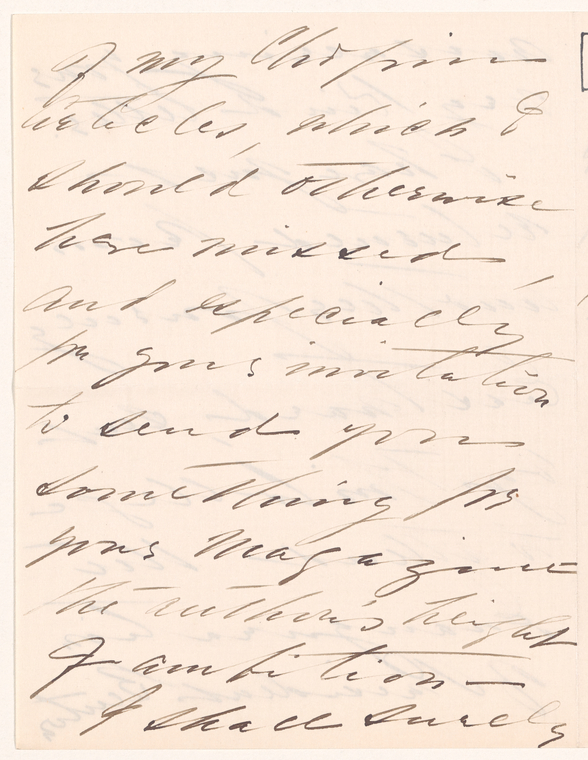 of my Chopin
articles, which I
should otherwise
have missed,
and especially
for your invitation
to send you
something for
your Magazine
the author's height
of ambition —
I shall surely